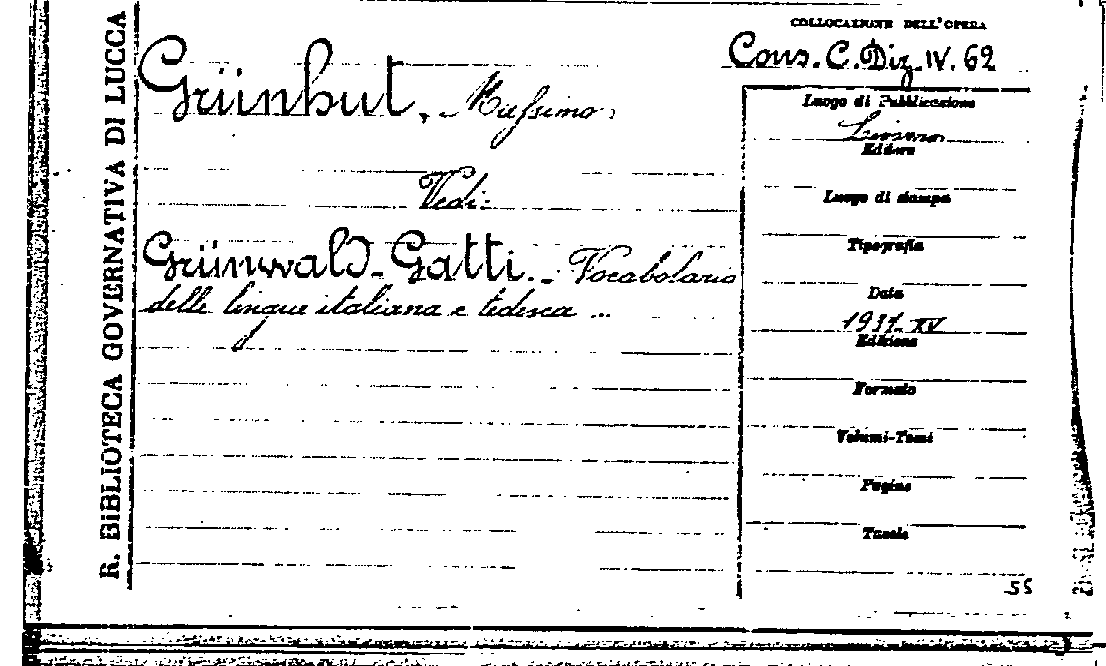 R. BIBLIOTECA GOVERNATIVA DI LUCCA
COLLOCAZIONE DELL'OPERA
Cons. C. Diz. IV. 62
Grünhut, Massimo,
Vedi:
Grünwald-Gatti. - Vocabolario
delle lingue italiana e tedesca ...
Luogo di Pubblicazione
Livorno
Editore
Luogo di stampa
Tipografia
Data
1937-XV
Edizione
Formato
Volumi-Tomi
Pagine
Tavole
55